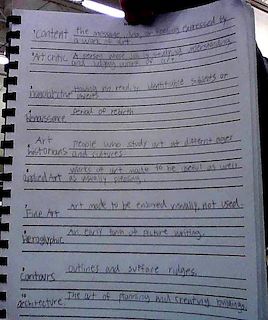 Content the message, idea, or feeling expressed by
a work of art.
Art critic A person whose job is studying, understanding
and judging works of art.
Having no readily identifiable subjects or
objects
Renaissance period of rebirth
Art People who study art at different ages
historians and cultures.
Applied Art works of art made to be useful as well
as visually pleasing.
Fine Art Art made to be enjoyed visually, not used.
Hieroglyphic An early form of picture writing.
Contours outlines and surface ridges.
architecture The art of planning and creating buildings.